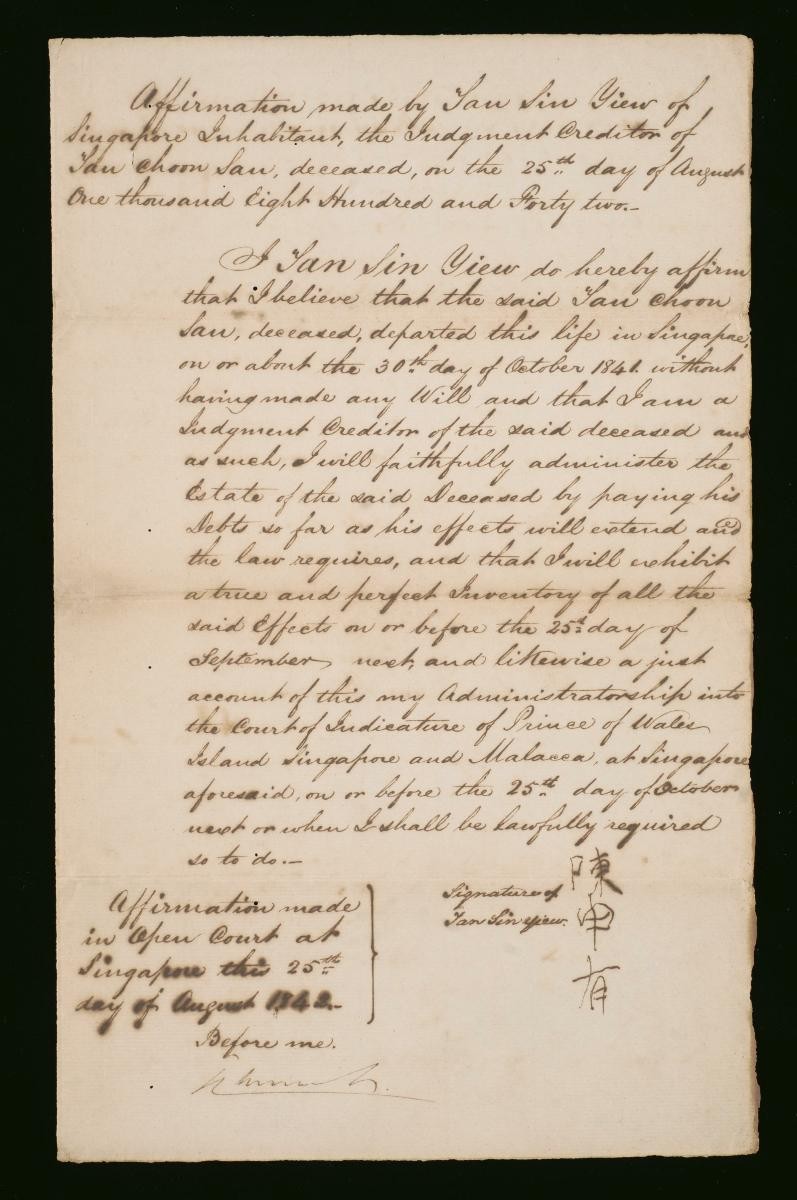 Affirmation made by Tan Sin Yiew of
Singapore Inhabitant, the Judgment Creditor of
Tan Choon San, deceased, on the 25th day of August
One thousand Eight Hundred and Forty two.—
I Tan Sin Yiew do hereby affirm
that I believe that the said Tan Choon
San, deceased, departed this life in Singapore,
on or about the 30th day of October 1841. without
having made any Will and that I am a
Judgment Creditor of the said deceased and
as such, I will faithfully administer the
Estate of the said Deceased by paying his
Debts so far as his effects will extend and
the law requires, and that I will exhibit
a true and perfect Inventory of all the
said Effects on or before the 25th day of
September next, and likewise a just
account of this my Administratorship into
the Court of Judicature of Prince of Wales
Island Singapore and Malacca, at Singapore
aforesaid, on or before the 25th day of October
next or when I shall be lawfully required
so to do.—
Affirmation made
in Open Court at
Singapore this 25th
day of August 1842.—
Before me.
Signature of
Tan Sin yiew.
陳申有